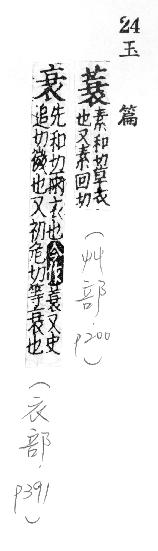 24
玉篇
蓑
素和切草衣
也又素回切
(艸部.p200)
衰
先和切雨衣也今作蓑又史
追切微也又初危切等衰也
(衣部.p391)